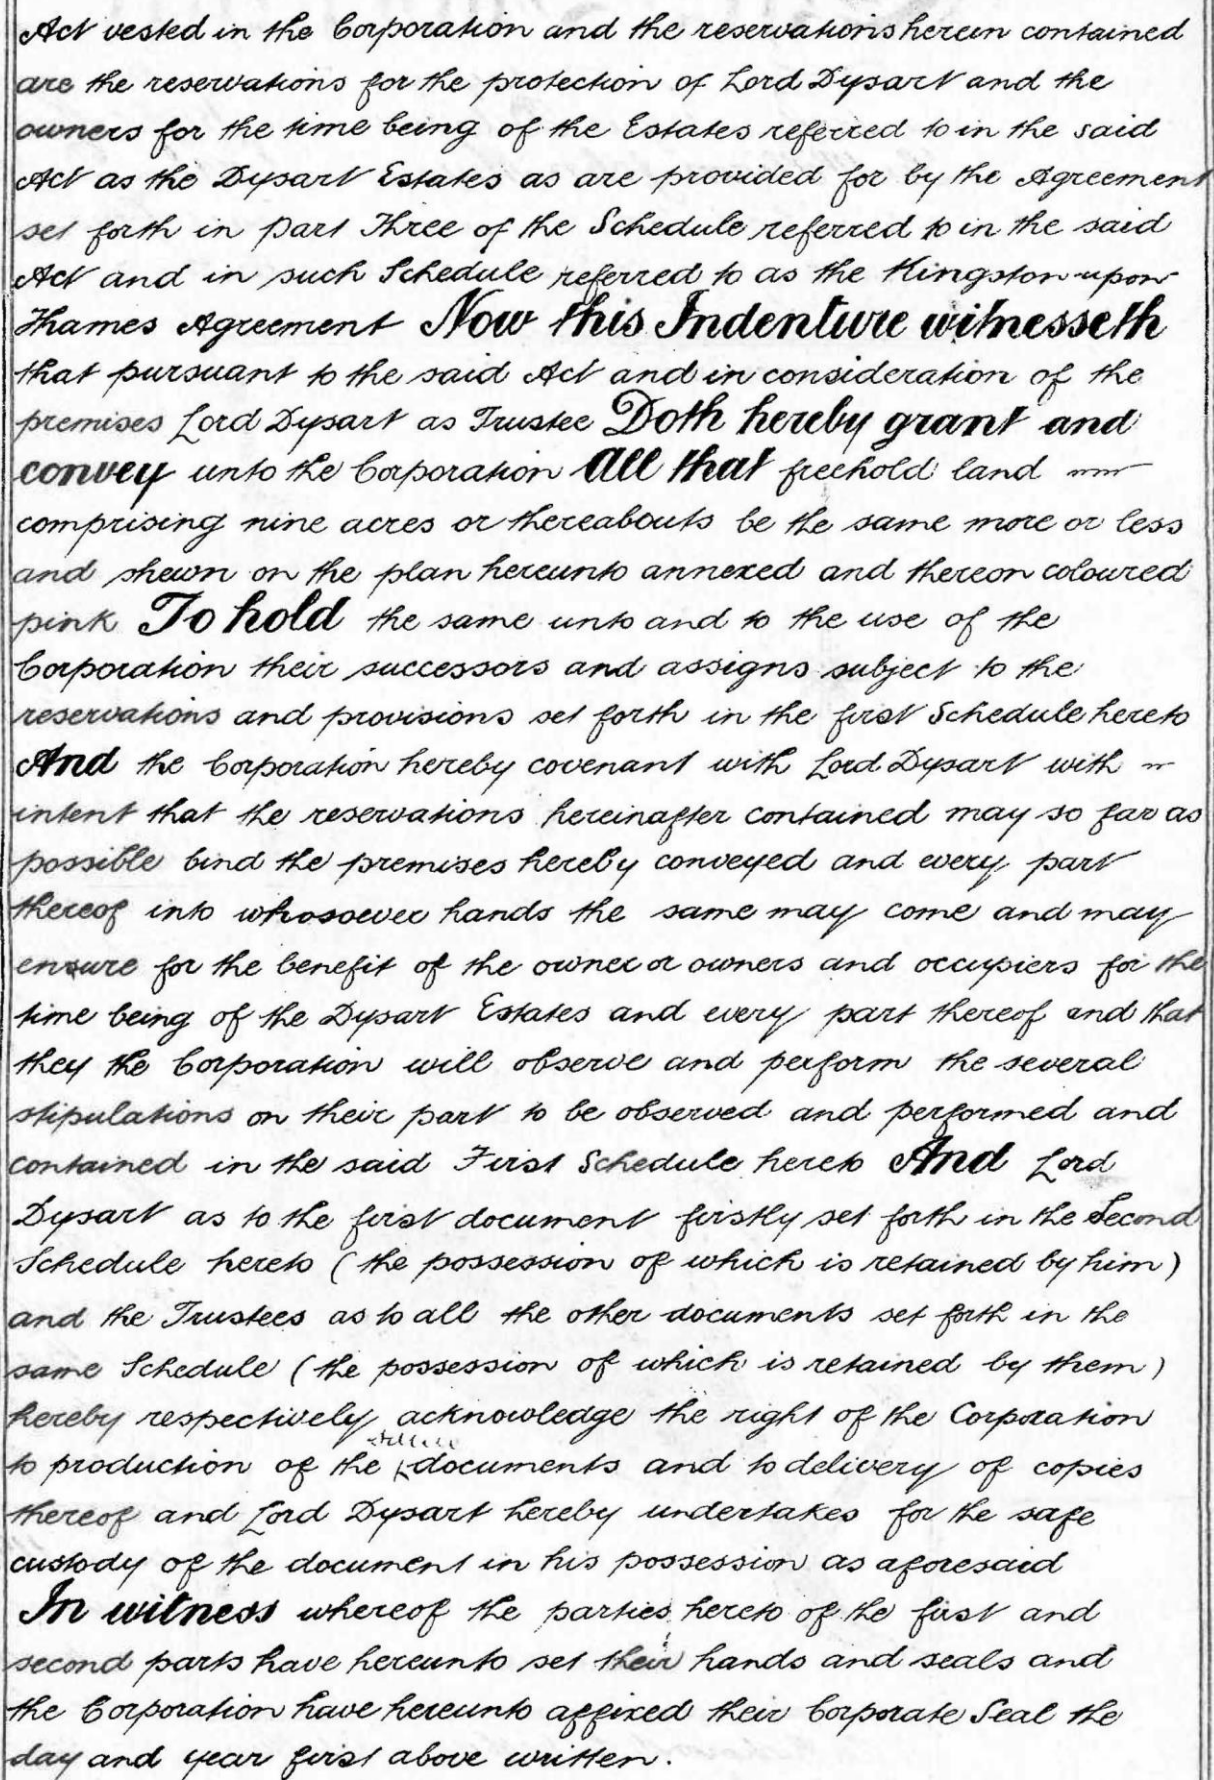 Act vested in the Corporation and the reservations herein contained
are the reservations for the protection of Lord Dysart and the
owners for the time being of the Estates referred to in the said
Act as the Dysart Estates as are provided for by the Agreement
set forth in Part Three of the Schedule referred to in the said
Act and in such Schedule referred to as the Kingston-upon-
Thames Agreement Now this Indenture witnesseth
that pursuant to the said Act and in consideration of the
premises Lord Dysart as Trustee Doth hereby grant and
convey unto the Corporation All that freehold land
comprising nine acres or thereabouts be the same more or less
and shewn on the plan hereunto annexed and thereon coloured
pink To hold the same unto and to the use of the
Corporation their successors and assigns subject to the
reservations and provisions set forth in the first Schedule hereto
And the Corporation hereby covenant with Lord Dysart with
intent that the reservations hereinafter contained may so far as
possible bind the premises hereby conveyed and every part
thereof into whosoever hands the same may come and may
enure for the benefit of the owner or owners and occupiers for the
time being of the Dysart Estates and every part thereof and that
they the Corporation will observe and perform the several
stipulations on their part to be observed and performed and
contained in the said First Schedule hereto And Lord
Dysart as to the first document firstly set forth in the Second
Schedule hereto (the possession of which is retained by him)
and the Trustees as to all the other documents set forth in the
same Schedule (the possession of which is retained by them)
hereby respectively acknowledge the right of the Corporation
to production of the documents and to delivery of copies
thereof and Lord Dysart hereby undertakes for the safe
custody of the document in his possession as aforesaid
In witness whereof the parties hereto of the first and
second parts have hereunto set their hands and seals and
the Corporation have hereunto affixed their Corporate Seal the
day and year first above written.